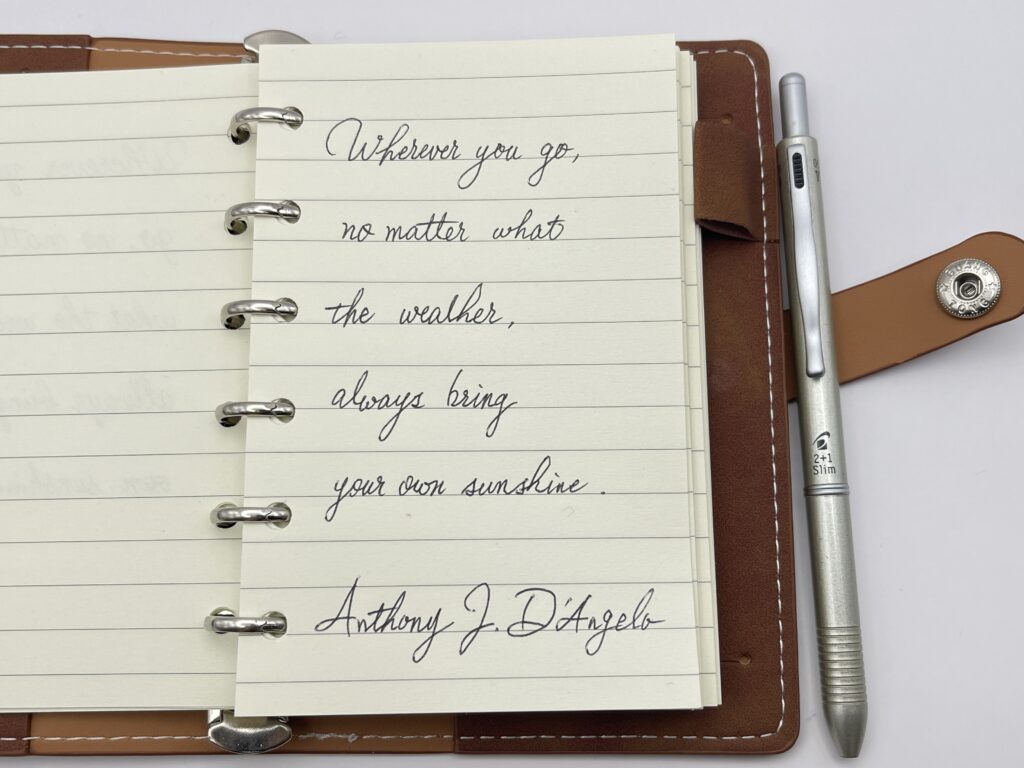 Wherever you go,
no matter what
the weather,
always bring
your own sunshine.
Anthony J. D'Angelo
GUANG
TONG
2+1
Slim